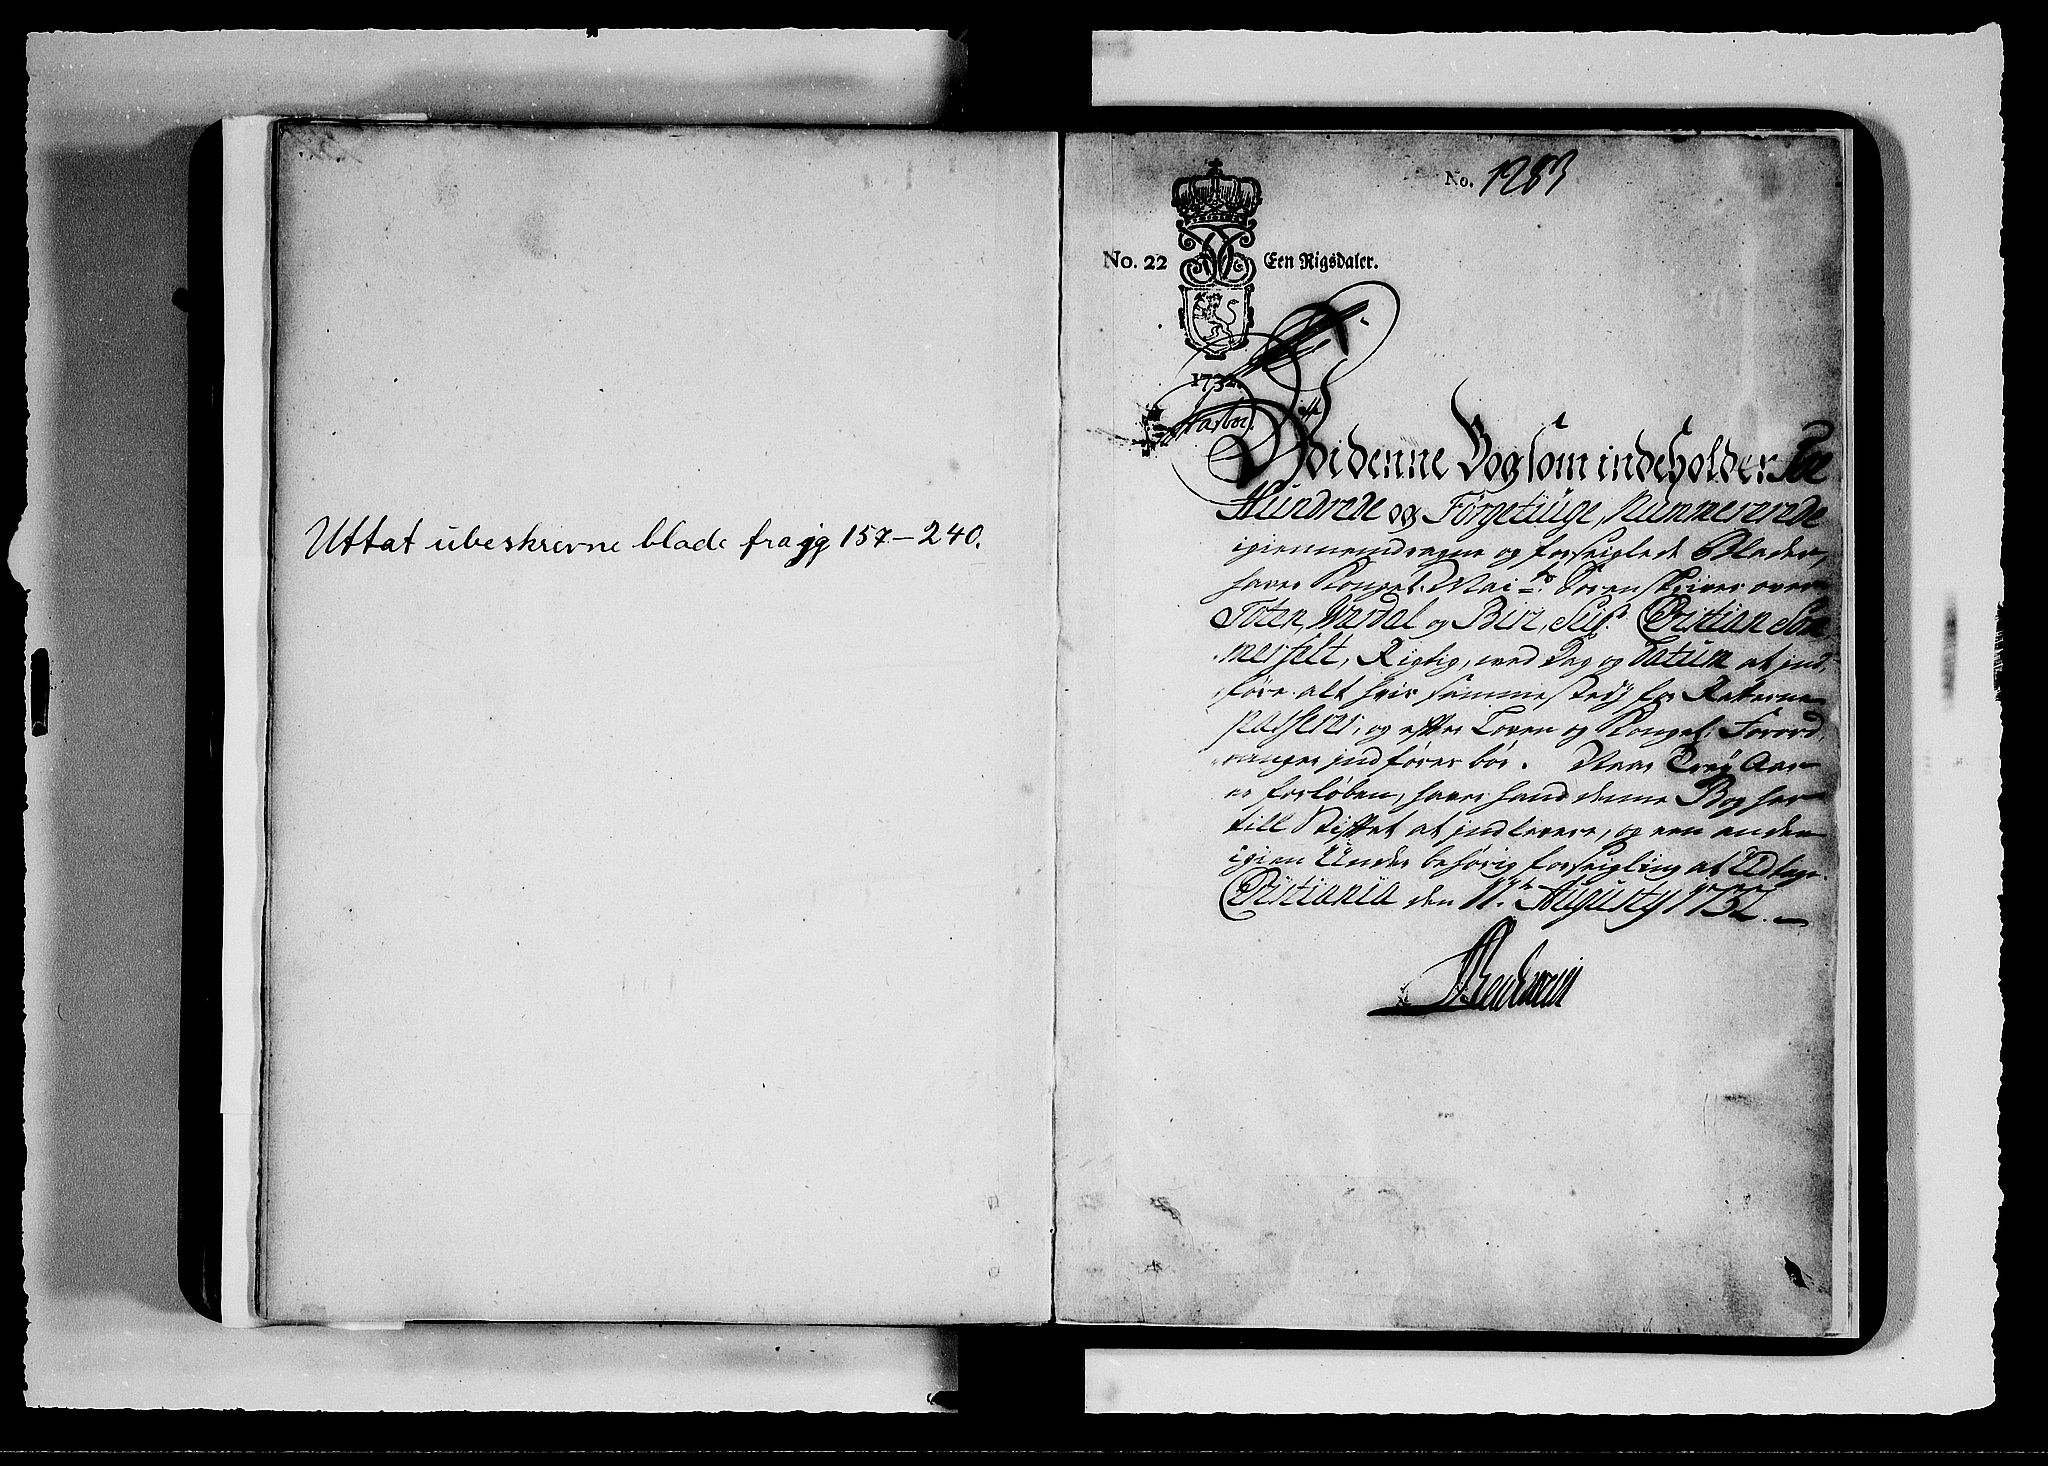 Uttat ubeskrevne blade fra pg 157–240.
No. 1283
No. 22 Een Rigsdaler.
1732.
Udi denne Bog som indeholder Toe
Hundrede og Förgetiuge, Nummererede
igiennemdragne og forseiglede Blader,
haver Kongel: Maits: Sorenskriver over
Toten, Wardal og Biri, Sigr. Christian Som
merfelt, Rigtig, med Dag og Datum at ind,
före alt hvis sammestedz for Retterne
passerer, og efter Loven og Kongel: Forord,
ninger indföres bör. Naar Trey Aar
er forlöben, haver hand denne Bog her
till Stiftet at indlevere, og een anden
igien Under behörig forseigling at Udtage.
Christiania den 11te Augusty 1732.